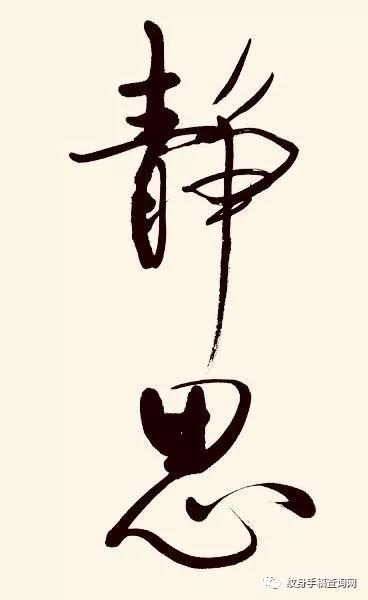 静
思
纹身手稿查询网